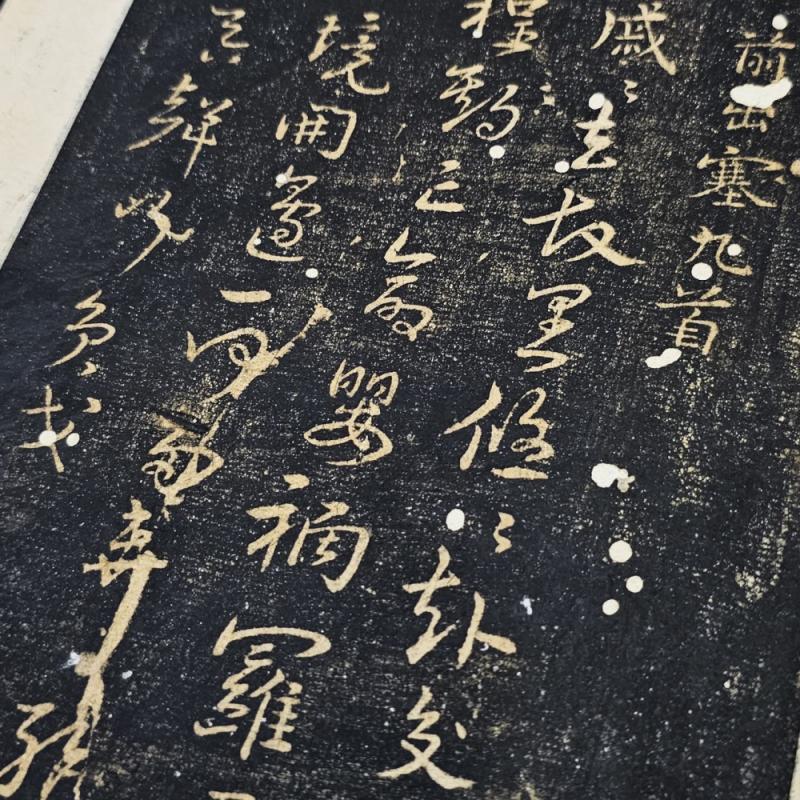 前出塞九首
戚〻去故里悠〻赴交
程期亡命嬰禍羅
境開邊一何多棄絶
吞聲行負戈